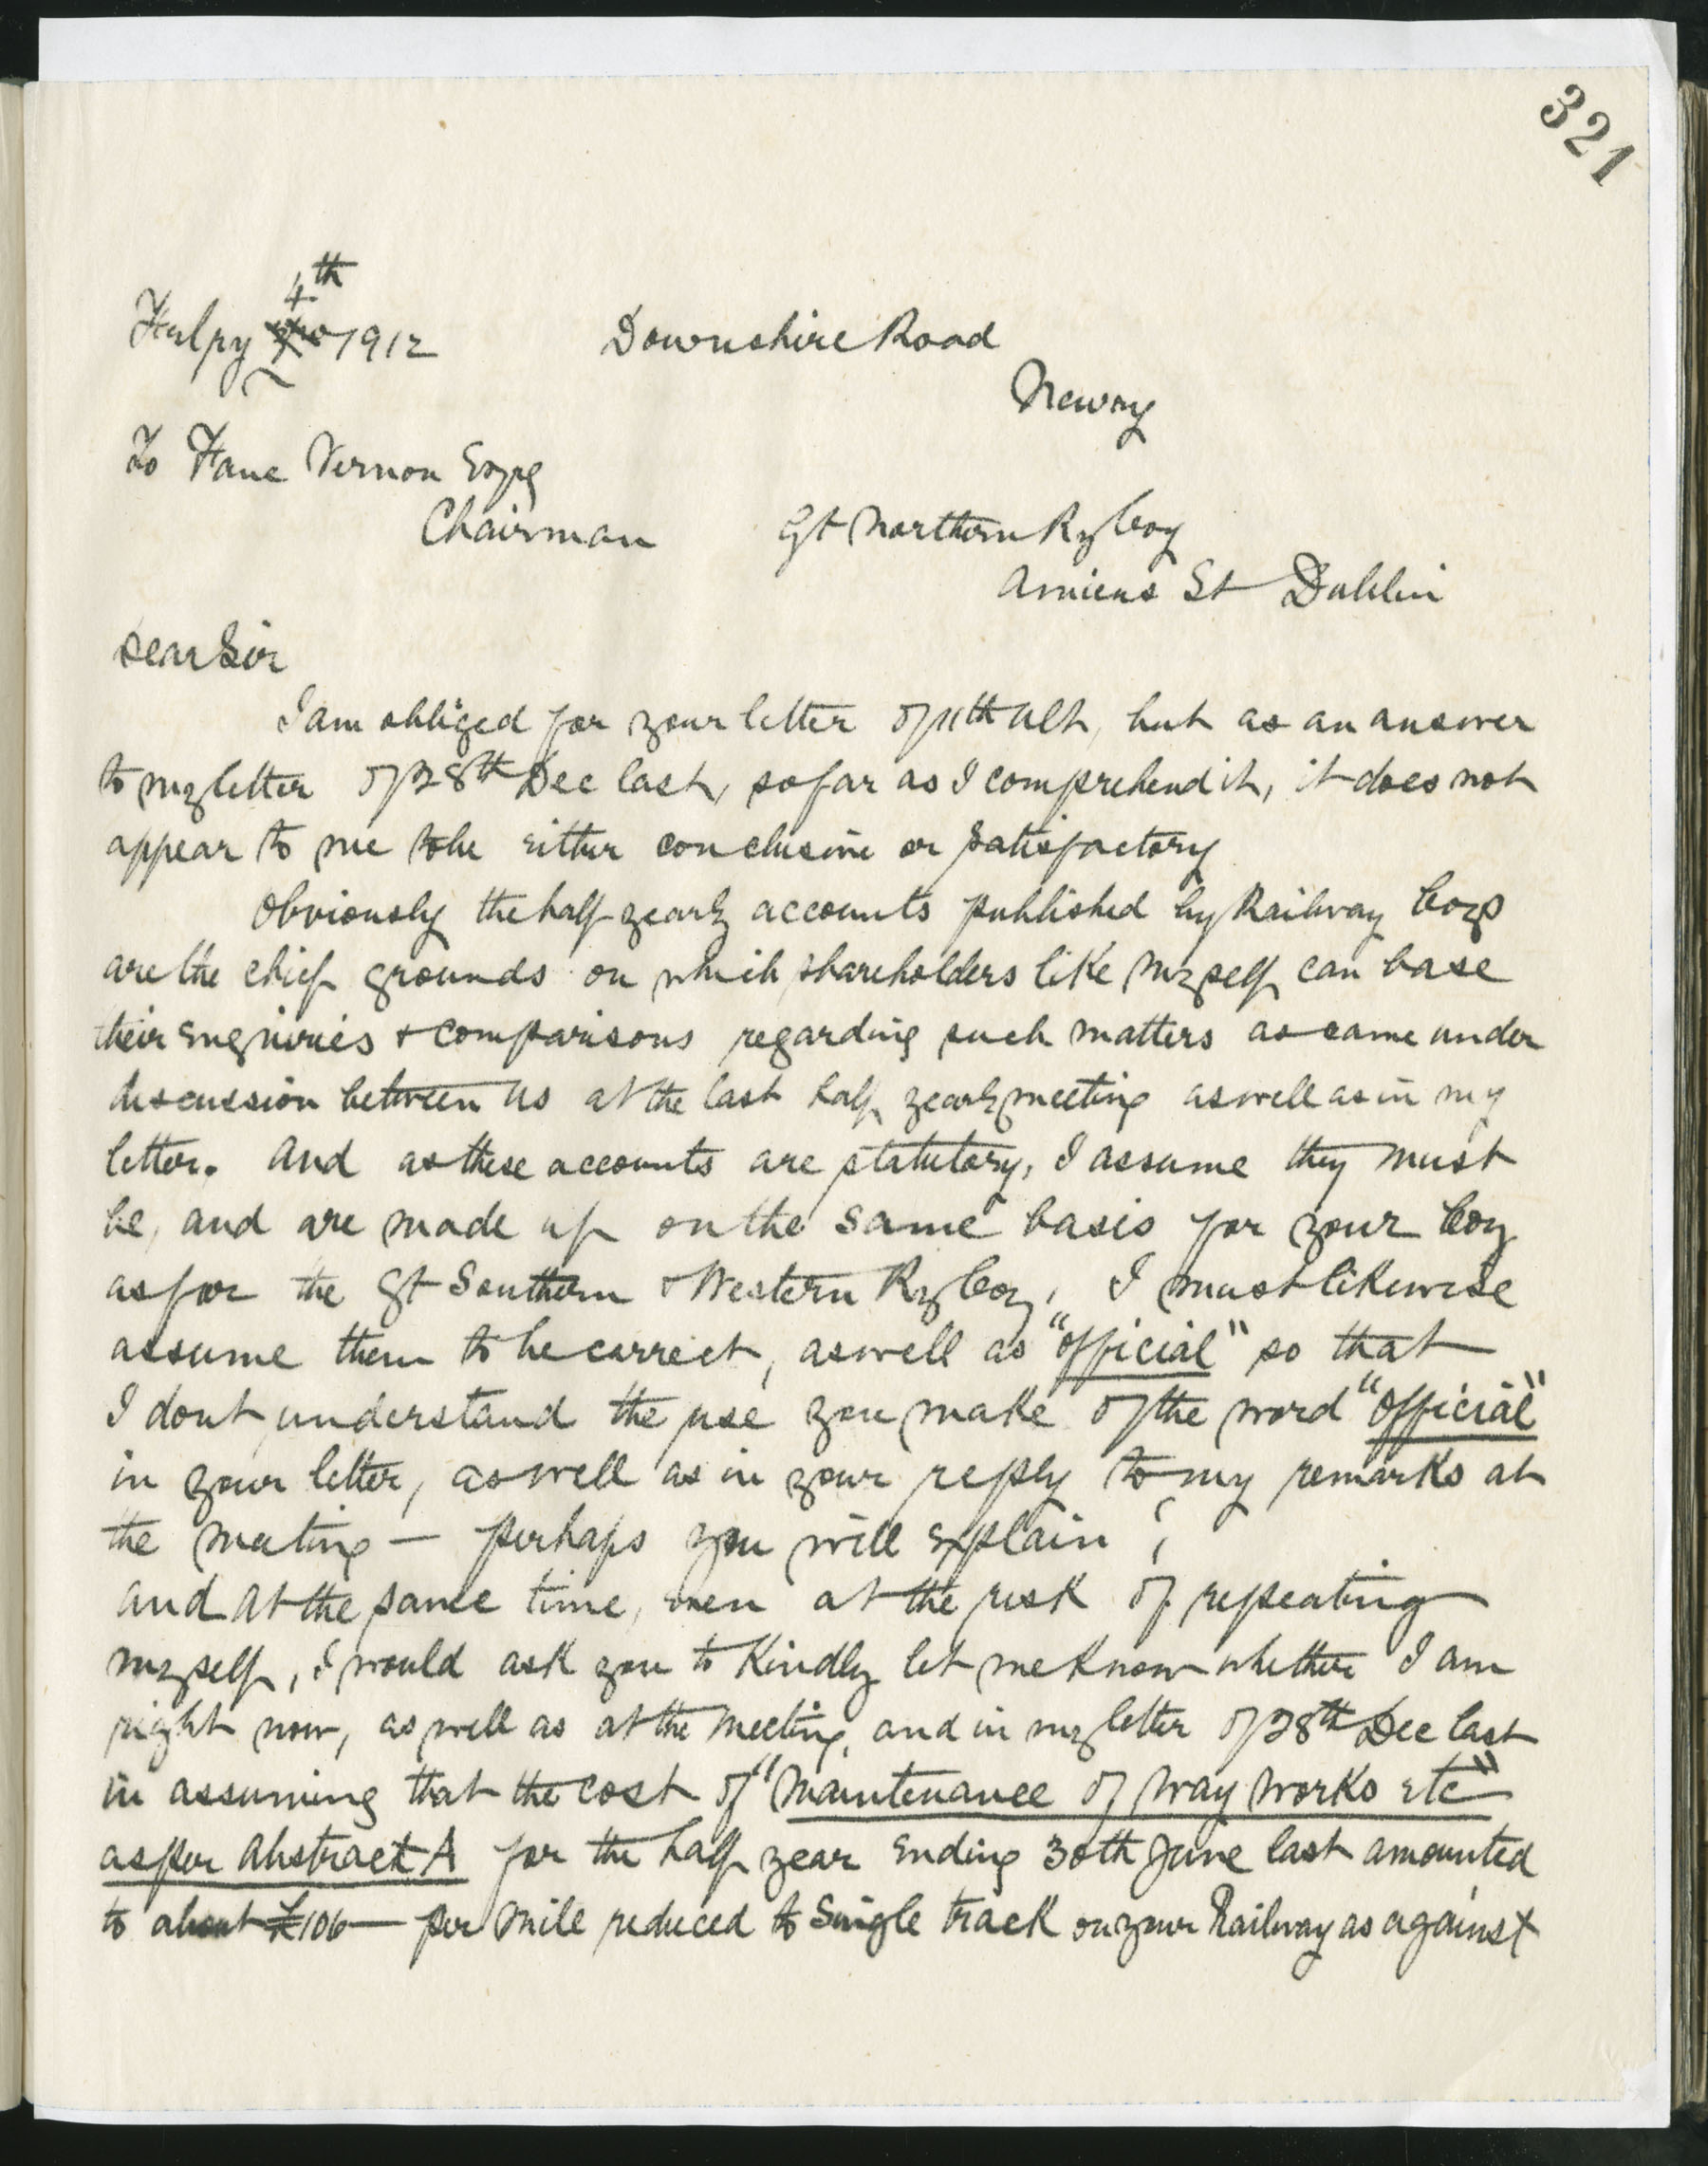 321
4th
Febry 1912 Downshire Road
Newry
To Fane Vernon Esqre
Chairman Gt Northern Ry Coy
Amiens St Dublin
Dear Sir
I am obliged for your letter of 11th ult, but as an answer
to my letter of 28th Dec last, so far as I comprehend it, it does not
appear to me to be either conclusive or satisfactory
Obviously the half yearly accounts published by Railway Coys
are the chief grounds on which shareholders like myself can base
their enquiries & comparisons regarding such matters as came under
discussion between us at the last half yearly meeting as well as in my
letter. And as these accounts are statutory, I assume they must
be, and are made up on the same basis for your Coy
as for the Gt Southern & Western Ry Coy, I must likewise
assume them to be correct, as well as "official" so that
I dont understand the use you make of the word "official"
in your letter, as well as in your reply to my remarks at
the meeting — perhaps you will explain;
and at the same time, even at the risk of repeating
myself, I would ask you to kindly let me know whether I am
right now, as well as at the meeting, and in my letter of 28th Dec last
in assuming that the cost of "Maintenance of way works etc"
as per Abstract A for the half year ending 30th June last amounted
to about £106 — per mile reduced to single track on your Railway as against